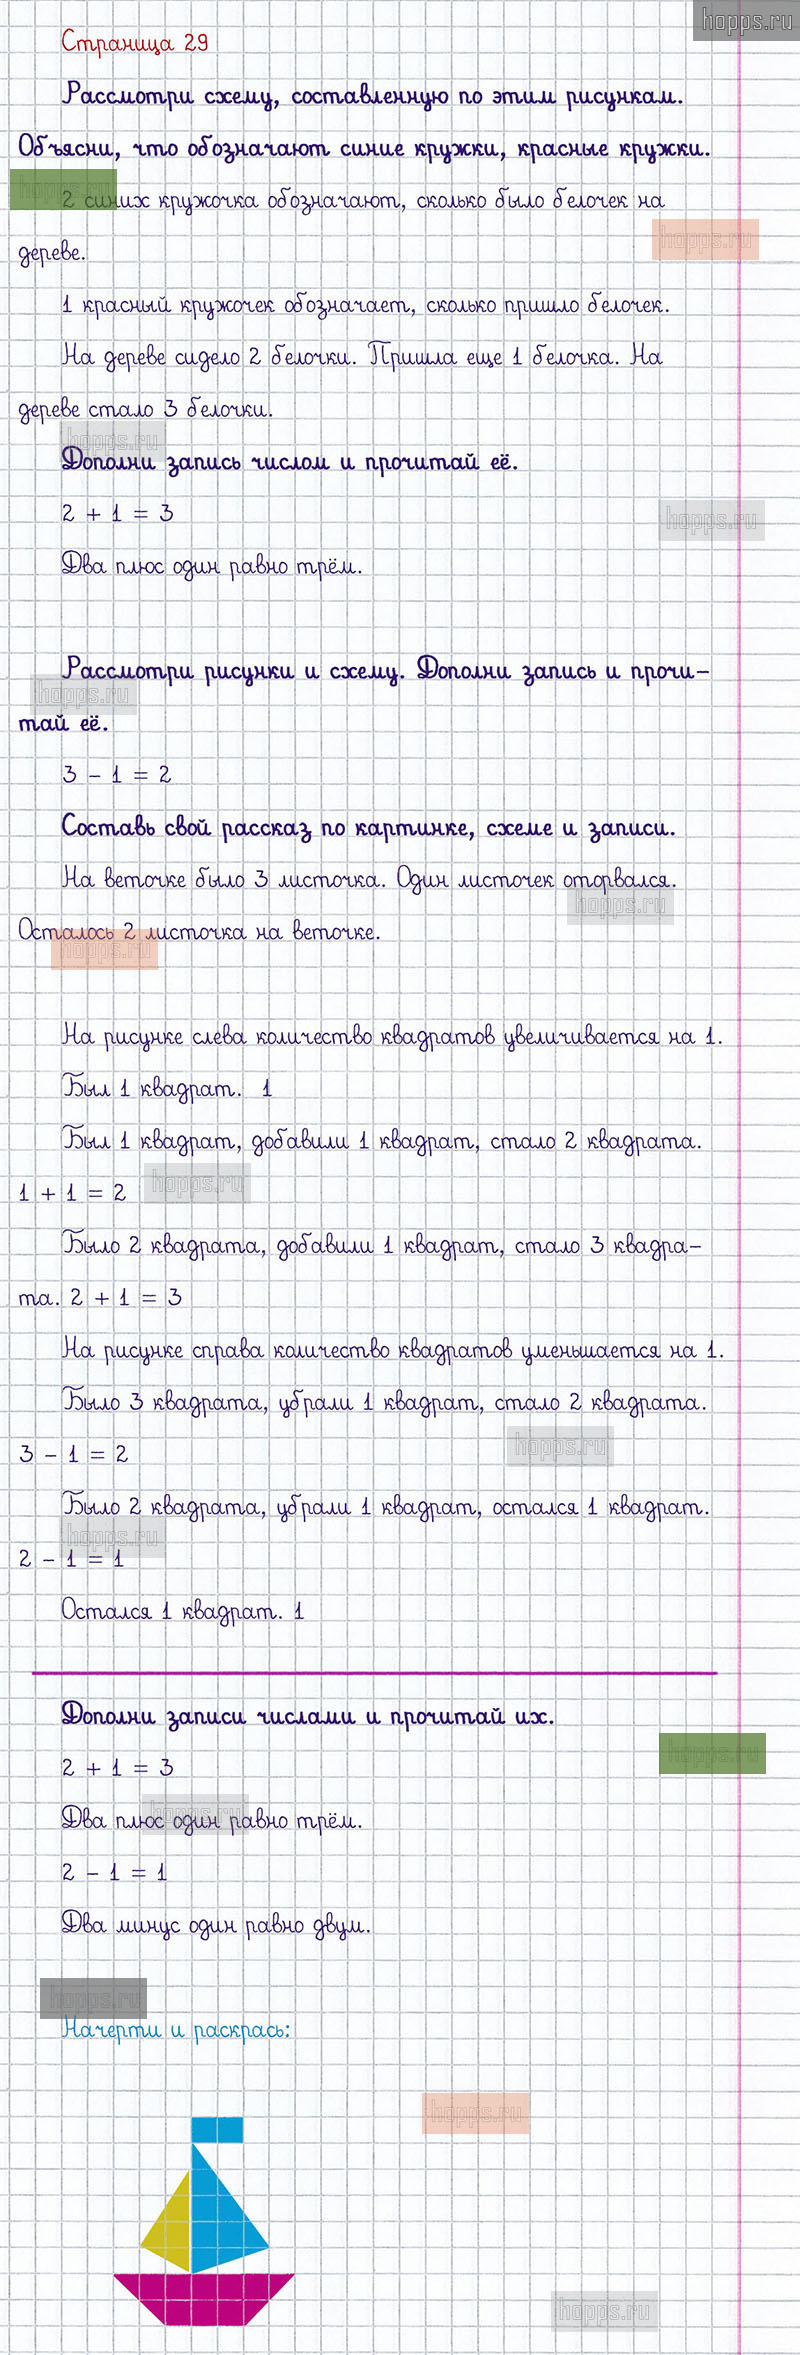 hopps.ru
Страница 29
Рассмотри схему, составленную по этим рисункам.
Объясни, что обозначают синие кружки, красные кружки.
hopps.ru
2 синих кружочка обозначают, сколько было белочек на
hopps.ru
дереве.
1 красный кружочек обозначает, сколько пришло белочек.
На дереве сидело 2 белочки. Пришла еще 1 белочка. На
дереве стало 3 белочки.
hopps.ru
Дополни запись числом и прочитай её.
2 + 1 = 3
hopps.ru
Два плюс один равно трём.
Рассмотри рисунки и схему. Дополни запись и прочи-
hopps.ru
тай её.
3 - 1 = 2
Составь свой рассказ по картинке, схеме и записи.
На веточке было 3 листочка. Один листочек оторвался.
hopps.ru
Осталось 2 листочка на веточке.
hopps.ru
На рисунке слева количество квадратов увеличивается на 1.
Был 1 квадрат. 1
Был 1 квадрат, добавили 1 квадрат, стало 2 квадрата.
1 + 1 = 2
hopps.ru
Было 2 квадрата, добавили 1 квадрат, стало 3 квадра-
та. 2 + 1 = 3
На рисунке справа количество квадратов уменьшается на 1.
Было 3 квадрата, убрали 1 квадрат, стало 2 квадрата.
3 - 1 = 2
hopps.ru
Было 2 квадрата, убрали 1 квадрат, остался 1 квадрат.
hopps.ru
2 - 1 = 1
Остался 1 квадрат. 1
Дополни записи числами и прочитай их.
2 + 1 = 3
hopps.ru
Два плюс один равно трём.
hopps.ru
2 - 1 = 1
Два минус один равно двум.
hopps.ru
Начерти и раскрась:
hopps.ru
hopps.ru